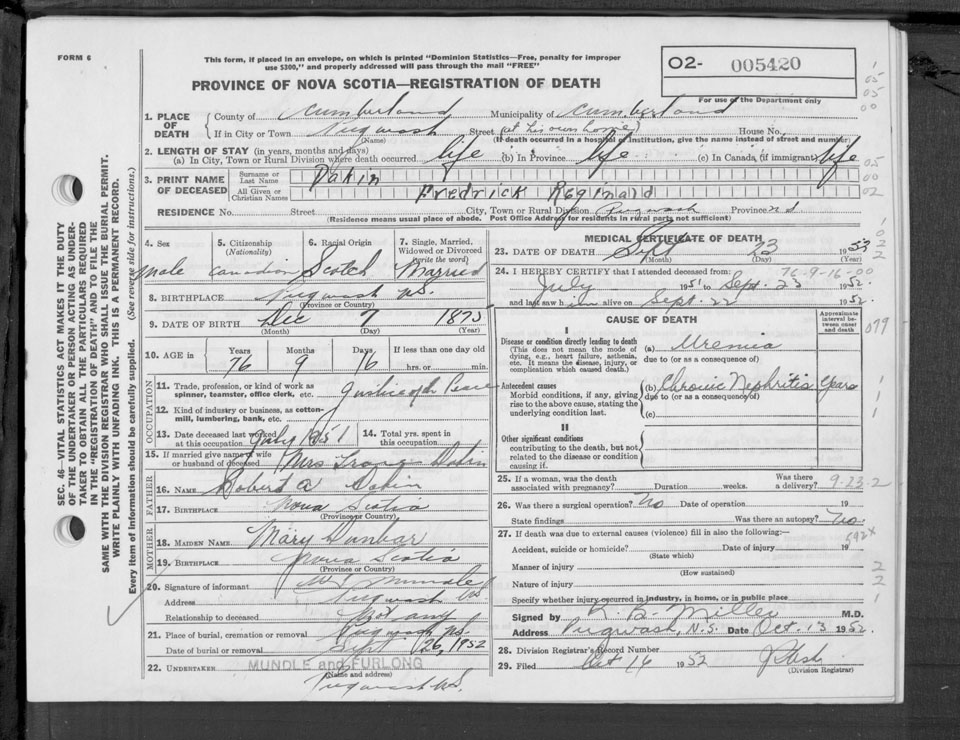 FORM 6
This form, if placed in an envelope, on which is printed "Dominion Statistics—Free, penalty for improper
use $300," and properly addressed will pass through the mail "FREE"
PROVINCE OF NOVA SCOTIA—REGISTRATION OF DEATH
O2- 005420
For use of the Department only
1. PLACE OF DEATH
County of Cumberland Municipality of Cumberland
If in City or Town Pugwash Street (at his own home) House No.
(Name) (If death occurred in a hospital or institution, give the name instead of street and number)
2. LENGTH OF STAY (in years, months and days)
(a) In City, Town or Rural Division where death occurred life (b) In Province life (c) In Canada (if immigrant) life
3. PRINT NAME OF DECEASED
Surname or Last Name Dakin
All Given or Christian Names Fredrick Reginald
RESIDENCE No. Street City, Town or Rural Division Pugwash Province
(Residence means usual place of abode. Post Office Address for residents in rural parts not sufficient)
4. Sex 5. Citizenship 6. Racial Origin 7. Single, Married,
(Nationality) Widowed or Divorced
(write the word)
male Canadian Scotch Married
8. BIRTHPLACE Pugwash NS.
(Province or Country)
9. DATE OF BIRTH Dec 7 1875
(Month) (Day) (Year)
10. AGE in Years Months Days If less than one day old
76 9 16 hrs. or min.
OCCUPATION
11. Trade, profession, or kind of work as
spinner, teamster, office clerk, etc. Justice of the Peace
12. Kind of industry or business, as cotton-
mill, lumbering, bank, etc.
13. Date deceased last worked
at this occupation July 1951
14. Total yrs. spent in
this occupation
15. If married give name of wife
or husband of deceased Mrs Dakin
FATHER
16. NAME Robert A Dakin
17. BIRTHPLACE Nova Scotia
(Province or Country)
MOTHER
18. MAIDEN NAME Mary Dunbar
19. BIRTHPLACE Nova Scotia
(Province or Country)
20. Signature of informant Mundle
Address Pugwash NS
Relationship to deceased Not any
21. Place of burial, cremation or removal Pugwash NS.
Date of burial or removal Sept 26, 1952
22. UNDERTAKER MUNDLE and FURLONG
(Name and address)
Pugwash NS.
MEDICAL CERTIFICATE OF DEATH
23. DATE OF DEATH Sept 23 1952
(Month) (Day)
76-9-16-00
24. I HEREBY CERTIFY that I attended deceased from:
July 1951 to Sept. 23 1952.
and last saw him alive on Sept. 22 1952.
CAUSE OF DEATH
Approximate interval between onset and death
I
Disease or condition directly leading to death
(This does not mean the mode of
dying, e.g., heart failure, asthenia,
etc. It means the disease, injury, or
complication which caused death.)
(a) Uremia
due to (or as a consequence of)
Antecedent causes
Morbid conditions, if any, giving
rise to the above cause, stating the
underlying condition last.
(b) Chronic Nephritis Years
due to (or as a consequence of)
(c)
II
Other significant conditions
contributing to the death, but not
related to the disease or condition
causing it.
079
25. If a woman, was the death Was there
associated with pregnancy? Duration weeks. a delivery? 9-23-2
26. Was there surgical operation? No Date of operation 19
State findings Was there an autopsy? No
592x
27. If death was due to external causes (violence) fill in also the following:—
Accident, suicide or homicide? Date of injury 19
(State which)
Manner of injury
(How sustained)
Nature of injury
Specify whether injury occurred in industry, in home, or in public place
Signed by K. B. Miller M.D.
Address Pugwash, N.S. Date Oct. 13 1952.
28. Division Registrar's Record Number
29. Filed Oct 16 1952
(Division Registrar)
SEC. 46—VITAL STATISTICS ACT MAKES IT THE DUTY
OF THE UNDERTAKER OR PERSON ACTING AS UNDER-
TAKER TO OBTAIN ALL THE PARTICULARS REQUIRED
IN THE "REGISTRATION OF DEATH" AND TO FILE THE
SAME WITH THE DIVISION REGISTRAR WHO SHALL ISSUE THE BURIAL PERMIT.
WRITE PLAINLY WITH UNFADING INK. THIS IS A PERMANENT RECORD.
Every item of information should be carefully supplied. (See reverse side for instructions.)